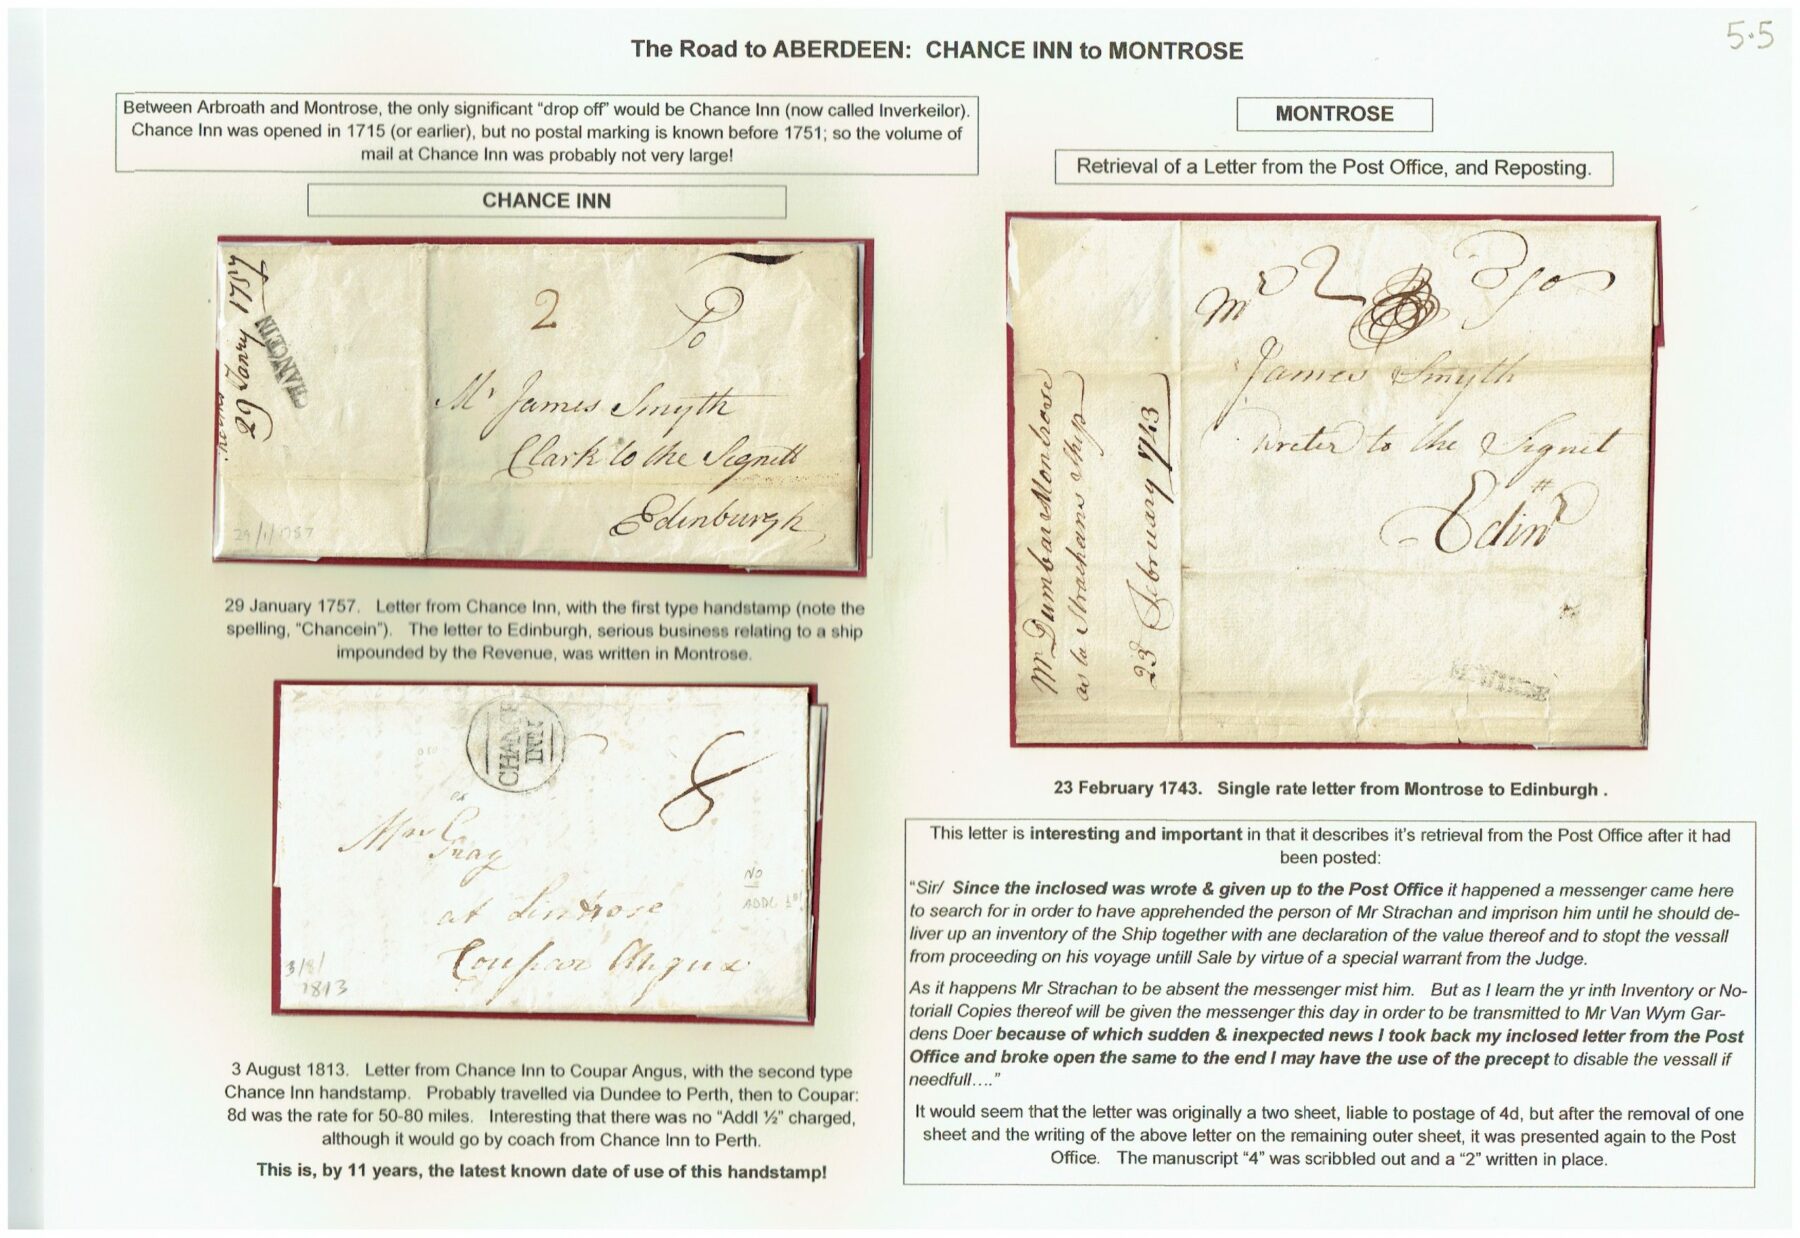 5.5
The Road to ABERDEEN: CHANCE INN to MONTROSE
Between Arbroath and Montrose, the only significant “drop off” would be Chance Inn (now called Inverkeilor).
Chance Inn was opened in 1715 (or earlier), but no postal marking is known before 1751; so the volume of
mail at Chance Inn was probably not very large!
CHANCE INN
29 Janry 1757
CHANCEIN
2
To
Mr James Smyth
Clark to the Signett
Edinburgh
29/1/1757
29 January 1757. Letter from Chance Inn, with the first type handstamp (note the
spelling, “Chancein”). The letter to Edinburgh, serious business relating to a ship
impounded by the Revenue, was written in Montrose.
CHANCE
INN
8
Gray
at Lintrose
Coupar Angus
NO
ADDL ½d
3/8/
1813
3 August 1813. Letter from Chance Inn to Coupar Angus, with the second type
Chance Inn handstamp. Probably travelled via Dundee to Perth, then to Coupar:
8d was the rate for 50-80 miles. Interesting that there was no “Addl ½” charged,
although it would go by coach from Chance Inn to Perth.
This is, by 11 years, the latest known date of use of this handstamp!
MONTROSE
Retrieval of a Letter from the Post Office, and Reposting.
Mr 2
James Smyth
writer to the Signet
Edinr
Mr Dumbar Montrose
as to Strachans Ship
23 February 1743
23 February 1743. Single rate letter from Montrose to Edinburgh .
This letter is interesting and important in that it describes it’s retrieval from the Post Office after it had
been posted:
“Sir/ Since the inclosed was wrote & given up to the Post Office it happened a messenger came here
to search for in order to have apprehended the person of Mr Strachan and imprison him until he should de-
liver up an inventory of the Ship together with ane declaration of the value thereof and to stopt the vessall
from proceeding on his voyage untill Sale by virtue of a special warrant from the Judge.
As it happens Mr Strachan to be absent the messenger mist him. But as I learn the yr inth Inventory or No-
toriall Copies thereof will be given the messenger this day in order to be transmitted to Mr Van Wym Gar-
dens Doer because of which sudden & inexpected news I took back my inclosed letter from the Post
Office and broke open the same to the end I may have the use of the precept to disable the vessall if
needfull....”
It would seem that the letter was originally a two sheet, liable to postage of 4d, but after the removal of one
sheet and the writing of the above letter on the remaining outer sheet, it was presented again to the Post
Office. The manuscript “4” was scribbled out and a “2” written in place.